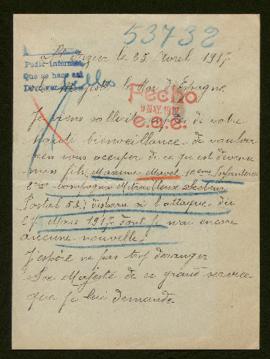 53732
le 25 Avril 1917
Pedir informes
Que se haga así
Fecho
9 MAY 1917
Sa Majesté le Roi d'Espagne
Je viens solliciter de votre
haute bienveillance de vouloir
bien vous occuper de ce qu'est devenu
mon fils, Maxime
compagnie Mitrailleuses Secteur
Postal disparu à l'attaque du
Mars 1917 dont je n'ai encore
aucune nouvelle
J'espère ne pas trop déranger
Sa Majesté de ce grand service
que je lui demande